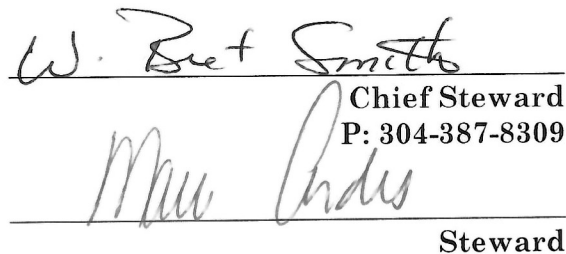 W. Bret Smith
Chief Steward
P: 304-387-8309
Steward